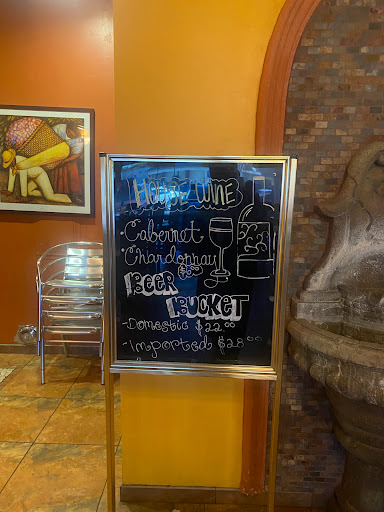 House Wine
·Cabernet
·Chardonnay
Beer
Bucket
-Domestic $22.00
-Imported $28.00